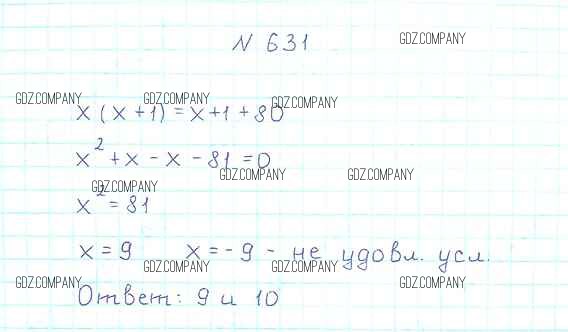 N 631
GDZ.COMPANY
GDZ.COMPANY GDZ.COMPANY GDZ.COMPANY
x (x+1) = x+1+80
x² + x - x - 81 = 0
GDZ.COMPANY GDZ.COMPANY GDZ.COMPANY
x² = 81
x = 9 x = -9 - не удовл. усл.
GDZ.COMPANY GDZ.COMPANY
GDZ.COMPANY GDZ.COMPANY
Ответ: 9 и 10